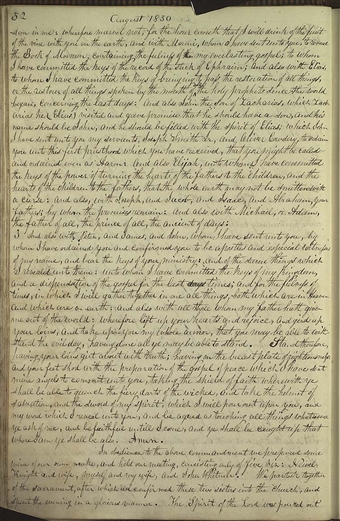 52 August 1830
sion in me; wherefore marvel not; for the hour cometh that I will drink of the fruit
of the vine with you on the earth; and with Moroni, whom I have sent unto you, to reveal
the Book of Mormon, containing the fulness of my everlasting gospel; to whom
I have committed the keys of the record of the stick of Ephraim; And also with Elias,
to whom I have committed the keys of bringing to pass the restoration of all things,
or the restorer of all things spoken by the mouth of all the holy prophets since the world
began, concerning the last days: And also John the son of Zacharias, which Zach
arias he (Elias) visited and gave promise that he should have a son, and his
name should be John, and he should be filled with the spirit of Elias; which John
I have sent unto you, my servants, Joseph Smith Jr. and Oliver Cowdery, to ordain
you unto this first priesthood which you have received, that you might be called
and ordained even as Aaron: And also Elijah, unto whom I have committed
the keys of the power of turning the hearts of the fathers to the children, and the
hearts of the children to the fathers, that the whole earth may not be smitten with
a curse: and also, with Joseph, and Jacob, and Isaac, and Abraham, your
fathers; by whom the promises remain: And also with Michael, or Adam,
the father of all, the prince of all, the ancient of days:
And also with Peter, and James, and John, whom I have sent unto you, by
whom I have ordained you and confirmed you to be apostles and especial witnesses
of my name, and bear the keys of your ministry: and of the same things which
I revealed unto them: unto whom I have committed the keys of my kingdom,
and a dispensation of the gospel for the last times; and for the fulness of
times, in which I will gather together in one all things both which are in heaven
and which are on earth: and also with all those whom my father hath given
me out of the world: wherefore lift up your hearts and rejoice, and gird up
your loins, and take upon you my whole armor, that you may be able to with
stand the evil day, having done all ye may be able to stand. Stand, therefore,
having your loins girt about with truth; having on the breastplate of righteousness;
and your feet shod with the preparation of the gospel of peace which I have sent
mine angels to commit unto you, taking the shield of faith wherewith ye
shall be able to quench the fiery darts of the wicked; and take the helmet of
salvation, and the sword of my spirit, which I will pour out upon you, and
my word which I reveal unto you, and be agreed as touching all things whatsoever
ye ask of me, and be faithful until I come, and ye shall be caught up that
where I am ye shall be also. Amen.
In obedience to the above commandment we prepared some
wine of our own make, and held our meeting, consisting only of five viz: Newel
Knight and wife, myself and my wife, and John Whitmer. We partook together
of the sacrament, after which we confirmed these two sisters into the church, and
spent the evening in a glorious manner. The Spirit of the Lord was poured out